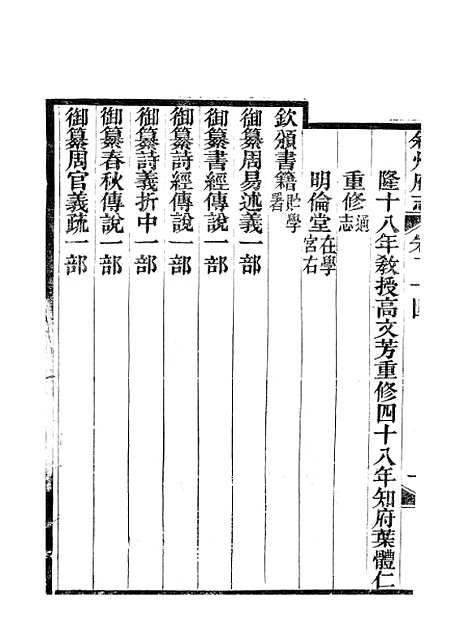 隆十八年教授高文芳重修四十八年知府葉體仁
重修通志
明倫堂在學宮右
欽頒書籍貯學署
御纂周易述義一部
御纂書經傳說一部
御纂詩經傳說一部
御纂詩義折中一部
御纂春秋傳說一部
御纂周官義疏一部